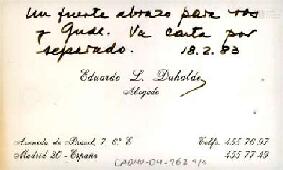 Un fuerte abrazo para vos
y Gude. Va carta por
separado. 18.2.83
Eduardo L. Duhalde
Abogado
Avenida de Brasil, 7 6º E Telfs. 455 76 97
Madrid 20 - España 455 77 49